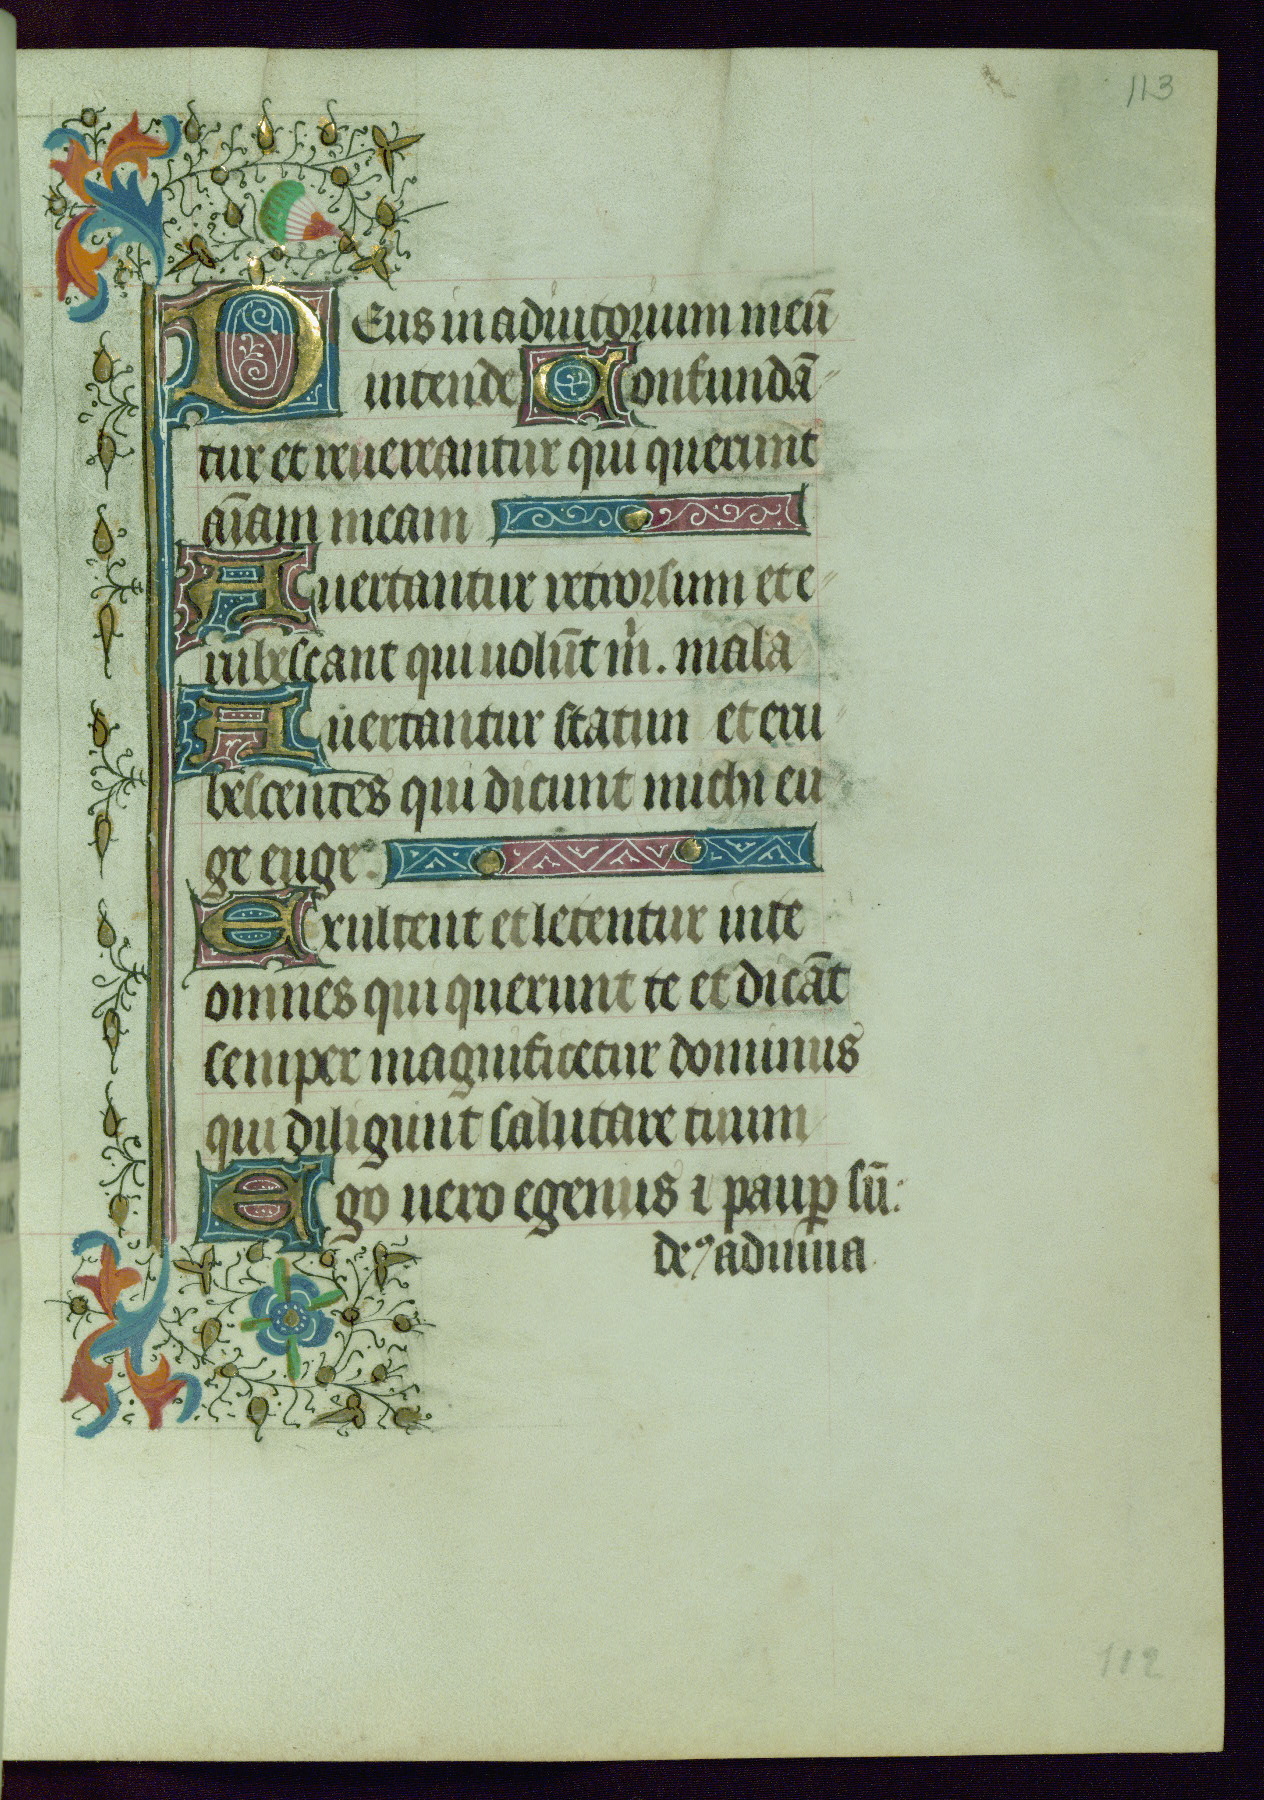 113
Deus in adiutorium meū
intende Confundā
tur et reuereantur qui querunt
aīam meam
Auertantur retrorsum et e
rubescant qui uolūt m̄. mala
Auertantur statim et eru
bescentes qui dicunt michi eu
ge euge.
Exultent et letentur in te
omnes qui querunt te et dicāt
semper magnificetur dominus
qui diligunt salutare tuum
Ego uero egenus ⁊ paup̱ sū.
deꝰ adiuua
112